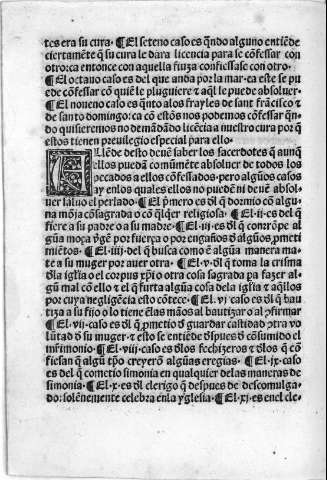 tes era su cura. ¶ El seteno caso es qñdo alguno entiẽde
ciertamẽte q̃ su cura le dara licencia para se cõfessar con
otro: ca entonce con aquella fiuza confiessase con otro.
¶ El octauo caso es del que anda por la mar ca este se pu
ede cõfessar cõ quiẽ le pluguiere ⁊ aq̃l le puede absoluer
¶ El noueno caso es qñto a los frayles de sant frãcisco ⁊
de santo domingo: ca cõ estõs nos podemos cõfessar qñ-
do quisieremos no demãdãdo licẽcia a nuestro cura por q̃
estos tienen preuilegio especial para ello.
Allẽde desto deuẽ saber los sacerdotes q̃ aunq̃
ellos puedã comũmẽte absoluer de todos los
pecados a ellos cõfessados. pero algũos casos
ay en los quales ellos no puedẽ ni deuẽ absol-
uer saluo el perlado. ¶ El p̃mero es dl̃ q̃ dormio cõ algu-
na mõja cõsagrada o cõ q̃lq̃er religiosa. ¶ El .ii. es del q̃
fiere a su padre o a su madre. ¶ El .iii. es dl̃ q̃ conrõpe al
gũa moça ỹgẽ por fuerça o por engaños dl̃ algũos p̃meti
miẽtos. ¶ El .iiij. del q̃ busca como ẽ algũa manera ma-
te a su muger por auer otra. ¶ El .v. dl̃ q̃ toma la crisma
dl̃a igl̃ia o el corpus xp̃i o otra cosa sagrada pa fazer al-
gũ mal cõ ello ⁊ el q̃ furta algũa cosa dela igl̃ia ⁊ aq̃llos
por cuya negligẽcia esto cõtece. ¶ El .vj. caso es dl̃ q̃ bau
tiza a su fijo o lo tiene ẽlas mãos al bautizar o al ꝯfirmar
¶ El .vij. caso es dl̃ q̃ p̃metio dl̃ guardar castidad ꝯtra vo
lũtad dl̃ su muger ⁊ esto se entiẽde dl̃spues dl̃ cõsumido el
m̃rimonio. ¶ El .viij. caso es dl̃os fechizeros ⁊ dl̃os q̃ cõ
fiesan q̃ algũ tp̃o creyerõ algũas eregias. ¶ El .ix. caso
es del q̃ cometio simonia en qualquier delas maneras de
simonia. ¶ El .x. es dl̃ clerigo q̃ despues de descomulga-
do: solẽnemente celebra ẽnla yglesia. ¶ El .xi. es en el cle-